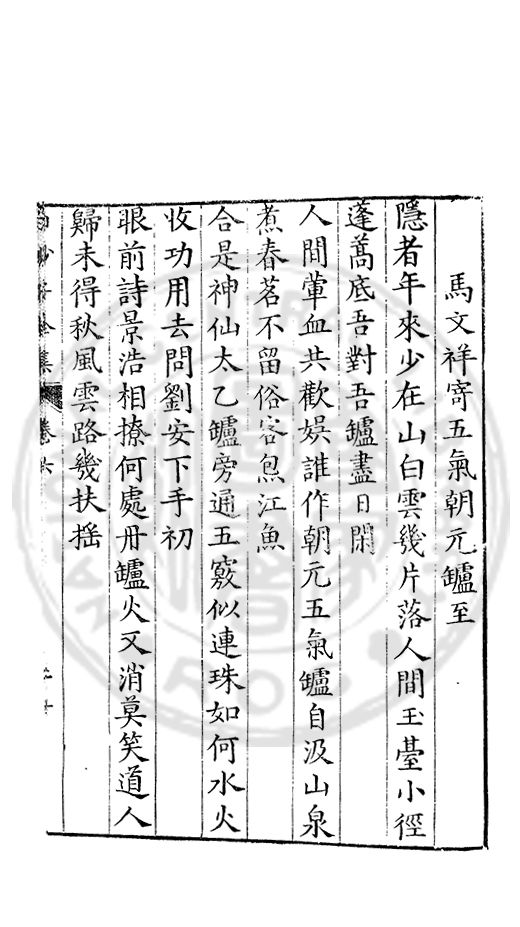 馬文祥寄五氣朝元鑪至
隱者年來少在山白雲幾片落人間玉臺小徑
蓬蒿底吾對吾鑪盡日閑
人間葷血共歡娛誰作朝元五氣鑪自汲山泉
煮春茗不留俗客炰江魚
合是神仙太乙鑪旁通五竅似連珠如何水火
收功用去問劉安下手初
眼前詩景浩相撩何處丹鑪火又消莫笑道人
歸未得秋風雲路幾扶搖
卷六